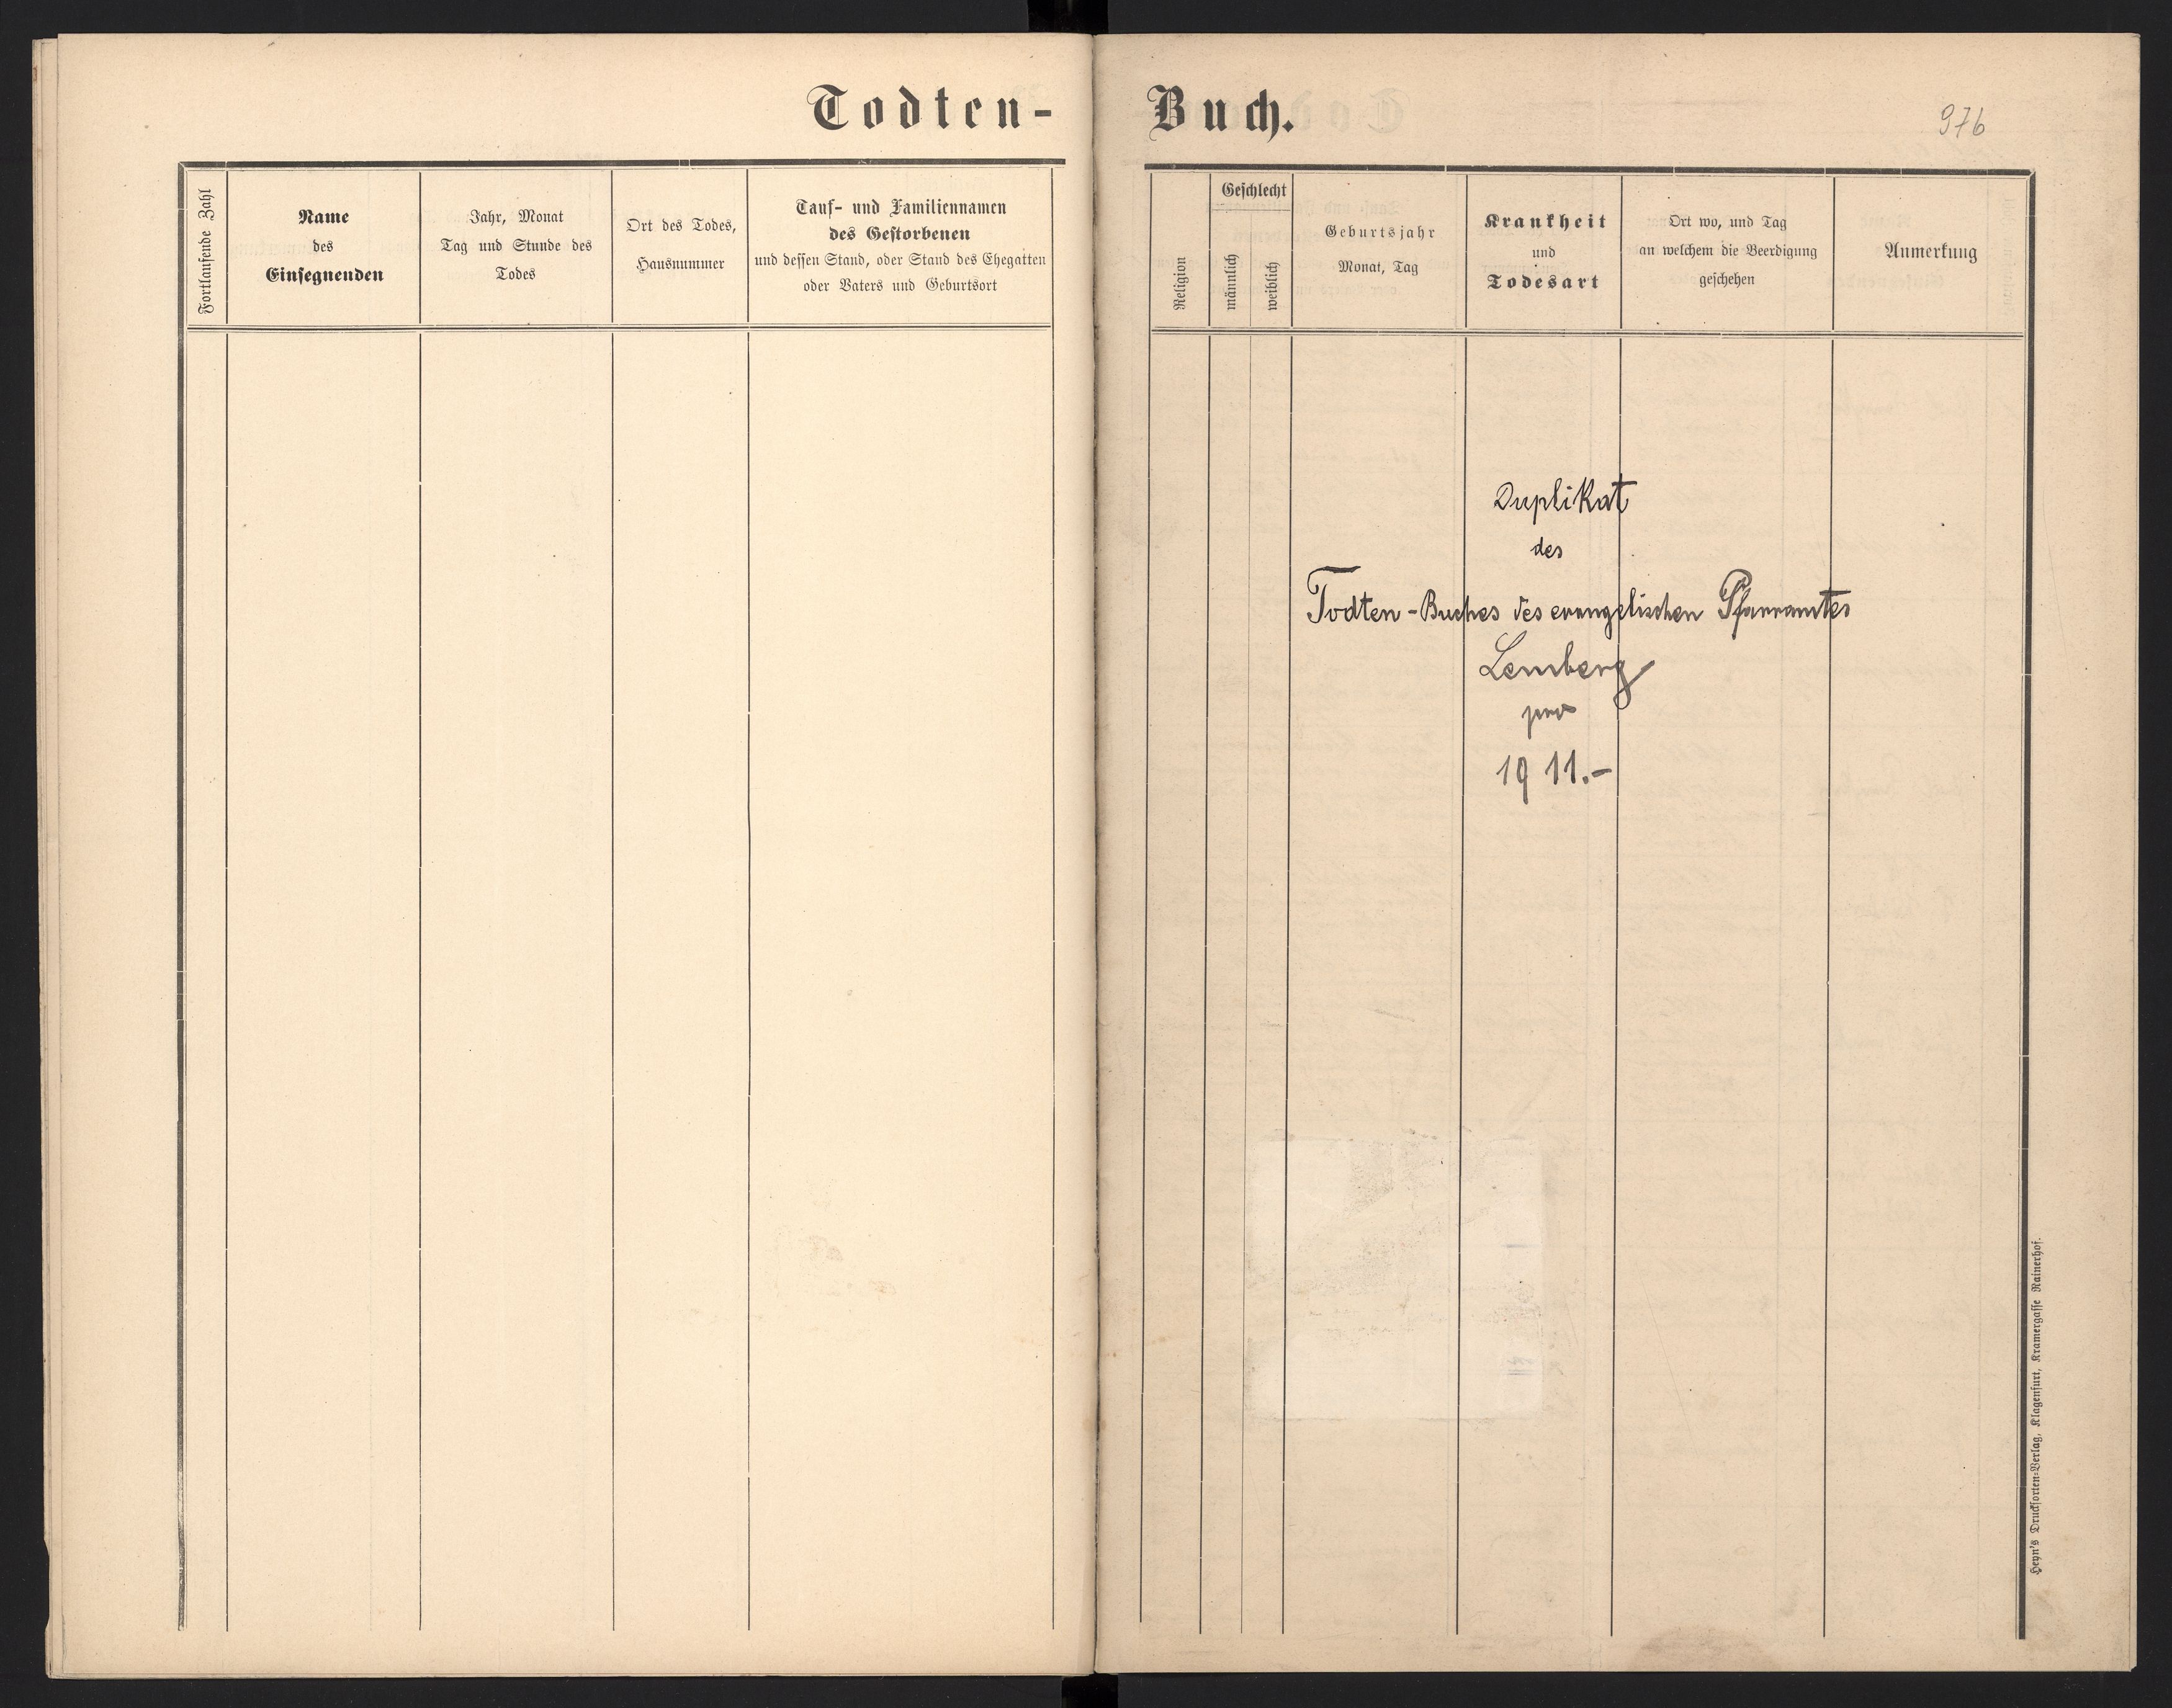 Todten-
Fortlaufende Zahl
Name
des
Einsegnenden
Jahr, Monat
Tag und Stunde des
Todes
Ort des Todes,
Hausnummer
Tauf- und Familiennamen
des Gestorbenen
und dessen Stand, oder Stand des Ehegatten
oder Vaters und Geburtsort
Buch.
976
Religion
Geschlecht
männlich
weiblich
Geburtsjahr
Monat, Tag
Krankheit
und
Todesart
Ort wo, und Tag
an welchem die Beerdigung
geschehen
Anmerkung
Duplikat
des
Todten-Buches des evangelischen Pfarramtes
Lemberg
pro
1911.-
Heyn's Drucksorten-Verlag, Klagenfurt, Kramergasse Rainerhof.